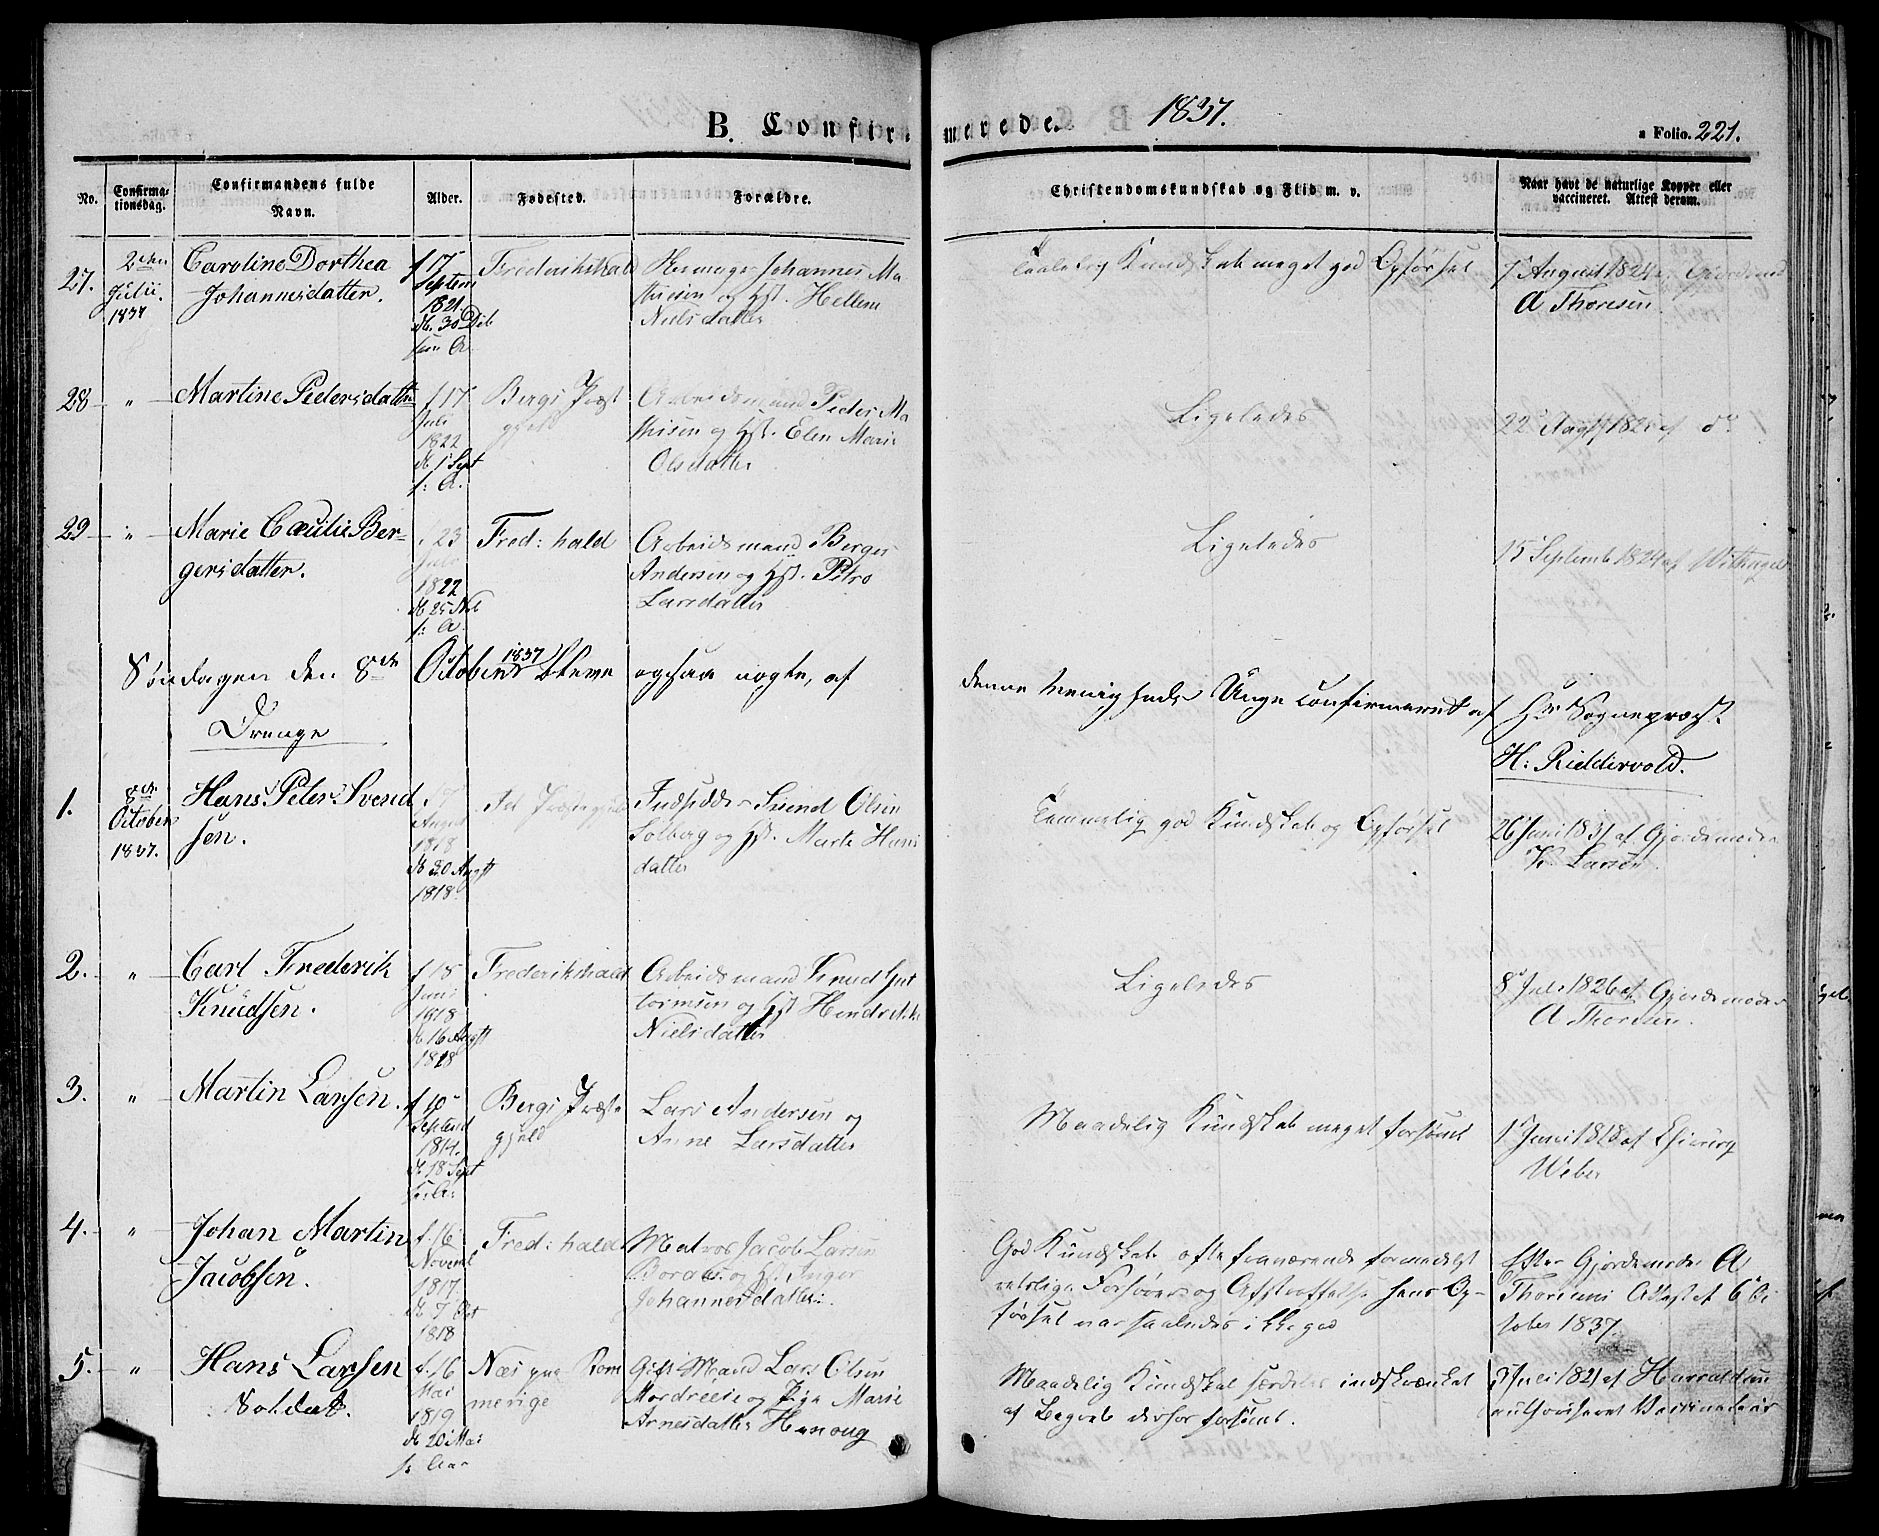 B. Confir-
merede. 1837.
a Folio. 221.
No.
Confirma-
tionsdag.
Confirmandens fulde
Navn.
Alder.
Fødested.
Forældre.
Christendomskundskab og Flid m. v.
Naar havt de naturlige Kopper eller
vaccineret. Attest derom.
27.
2den
Julii.
1837
Caroline Dorthea
Johannesdatter.
f 17
Septem
1821
db. 30 Dcb
s: A
Frederikshald
Johannes Ma
thisen og Hst. Hellene
Nielsdatter
Taalelig Kundskab meget god Opførsel
7 August 1824 af Gjordemd
A Thoresen
28
"
Martine Pedersdatter
f 17
Juli
1822
db 1 Sept
s: A.
Bergs Præst
gjeld
Arbeidsmand Peder Ma
thisen og Hst. Elen Marie
Olsdatter
Ligeledes
22 Augst 1825 af do
29
"
Marie Cæcilie Ber-
gersdatter.
f 23
Juli
1822
db 25
s: A.
Fred: hald
Arbeidsmand Berger
Andersen og Hst. Petro
Larsdatter
Ligeledes
15 Septemb 1824 af
Søndagen den 8de October 1837 bleve ogsaa nogle, af
denne Menigheds Unge confirmeret af Hr Sognepræst
H: Riddervold.
Drenge
1.
8de
October
1837.
Hans Peter Svend
sen.
f. 7
August
1818
db 30 Augst
1818
Id Præstegjeld
Indsidder Svend Olsen
Solberg og Hst. Marte Hans
datter
Temmelig god Kundskab og Opførsel
26 Juni 1831 af Gjordemoder
K Larsen
2.
"
Carl Frederik
Knudsen.
f 15
Juni
1818
db 16 Augst
1818
Frederikshald
Arbeidsmand Knud Gut
tormsen og Hst Hendrikke
Nielsdatter
Ligeledes
8 Juli 1826 af Gjordemoder
A Thoresen.
3.
"
Martin Larsen.
f 10
Septemb
1814.
db. 18 Sept
Bergs Præste
gjeld
Lars Andersen og
Anne Larsdatter
Maadelig Kundskab meget forsømt
1 Juni 1818 af Chirurg
Weber
4.
"
Johan Martin
Jacobsen.
f. 16
Novemb
1817.
db 7
1818
Fred: hald
Matros Jacob Larsen
og Hst Inger
Johannesdatter
God Kundskab, ofte fraværende formedelst
retslige Forhører og Afstraffelse hans Op-
førsel var saaledes ikke god
Efter Gjordemoder A
Thoresens Attest af 6 Oc
tober 1837.
5.
"
Hans Larsen
Soldat.
f. 16
Mai
1819
db 20 Mai
s: Aar
Næs paa Rom
merige
Gift Mand Lars Olsen
og Pige Marie
Arnesdatter
Maadelig Kundskab særdeles indskrænket
af Begreb derfor forsømt.
Juli 1821 af Haraldsen
authoriseret Vaccinateur